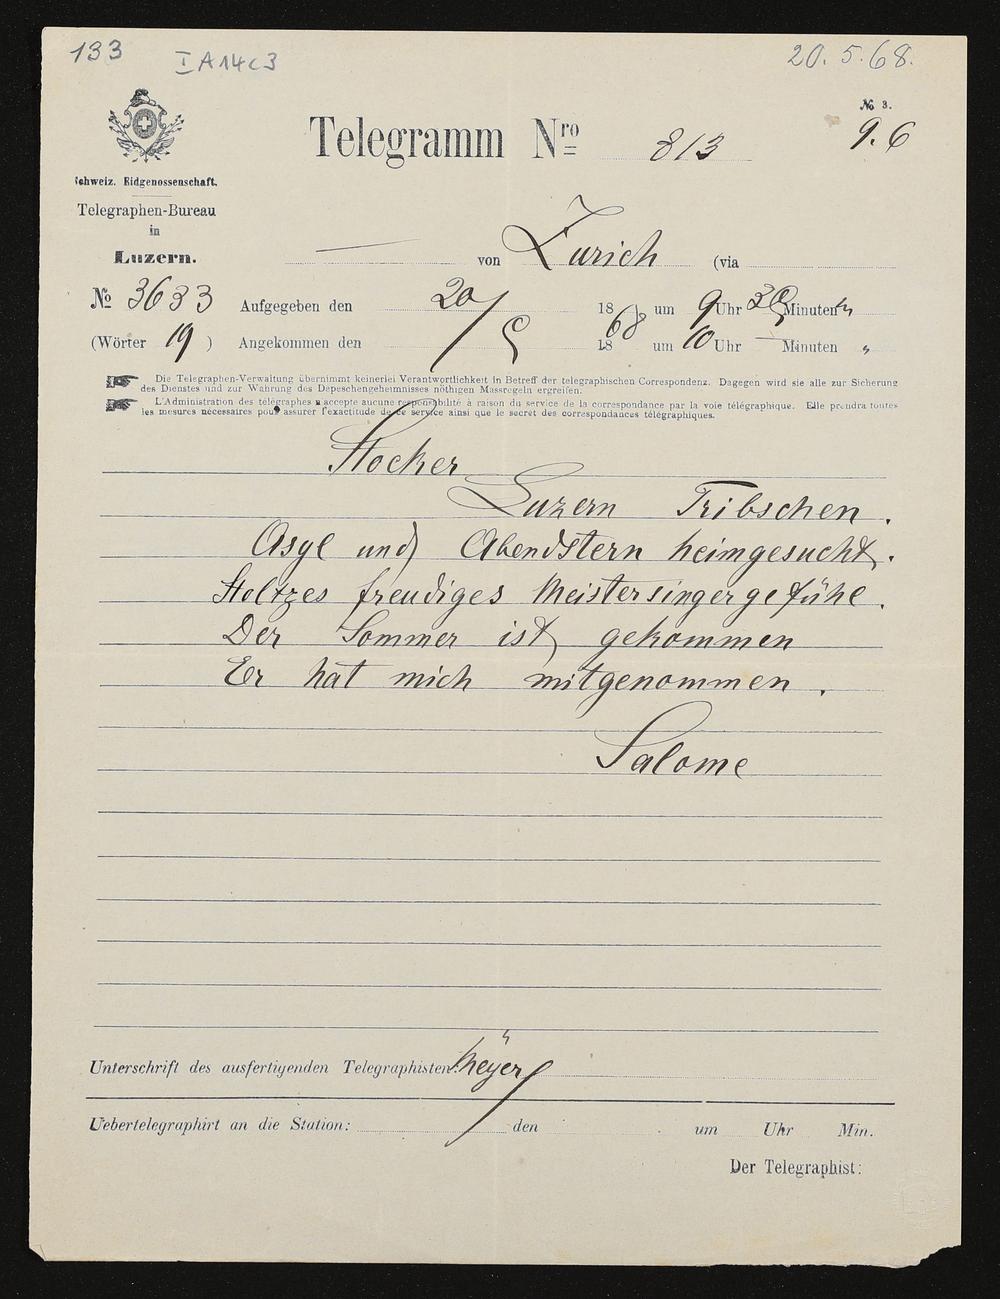 133
I A 14 c 3
20. 5. 68.
№ 3.
9. 6
Telegramm Nro 813
Schweiz. Eidgenossenschaft.
Telegraphen-Bureau
in
Luzern.
von Zurich (via
№ 3633 Aufgegeben den 20/5 1868 um 9 Uhr 30 Minuten
(Wörter 19 ) Angekommen den 18 um 10 Uhr — Minuten "
Die Telegraphen-Verwaltung übernimmt keinerlei Verantwortlichkeit in Betreff der telegraphischen Correspondenz. Dagegen wird sie alle zur Sicherung
des Dienstes und zur Wahrung des Depeschengeheimnisses nöthigen Massregeln ergreifen.
L'Administration des télégraphes n'accepte aucune responsabilité à raison du service de la correspondance par la voie télégraphique. Elle prendra toutes
les mesures nécessaires pour assurer l'exactitude de ce service ainsi que le secret des correspondances télégraphiques.
Stocker
Luzern Tribschen.
Asyl und Abendstern heimgesucht.
Stoltzes freudiges Meistersingergefühl.
Der Sommer ist gekommen
Er hat mich mitgenommen.
Salome
Unterschrift des ausfertigenden Telegraphisten: Meyer
Uebertelegraphirt an die Station: den um Uhr Min.
Der Telegraphist: